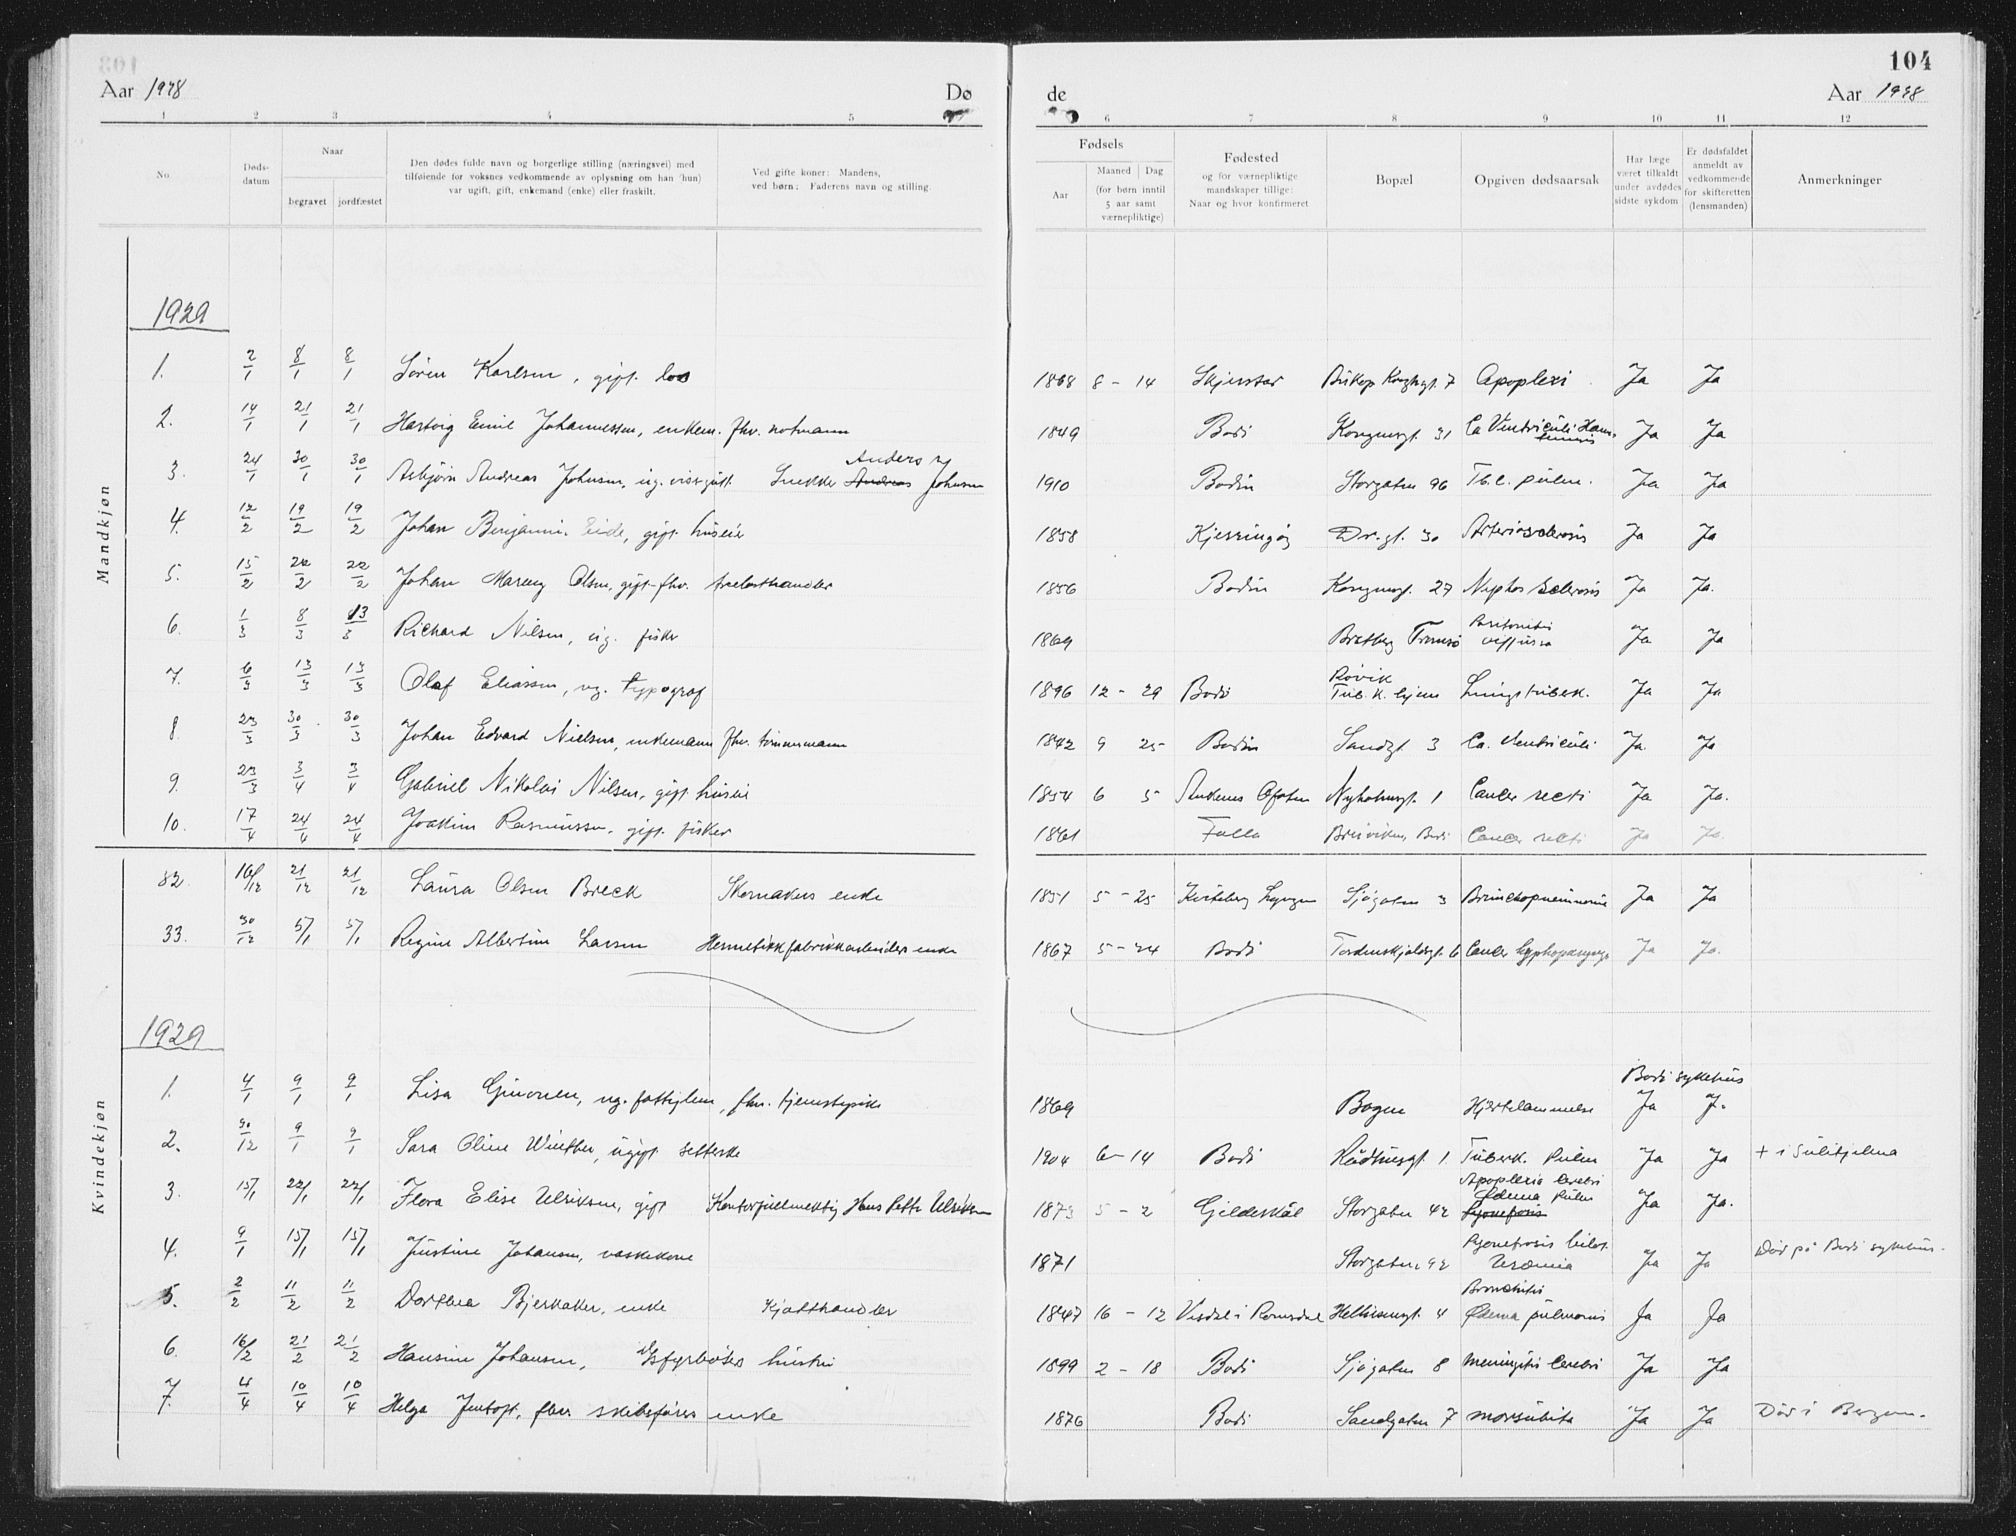 104
Aar 1928
Dø
de
Aar 1928
1 2 3 4 5 6 7 8 9 10 11 12
No.
Døds-
datum
Naar
begravet jordfæstet
Den dødes fulde navn og borgerlige stilling (næringsvei) med
tilføiende for voksnes vedkommende av oplysning om han (hun)
var ugift, gift, enkemand (enke) eller fraskilt.
Ved gifte koner: Mandens,
ved børn: Faderens navn og stilling.
Fødsels
Aar
Maaned Dag
(for børn inntil
5 aar samt
værnepliktige)
Fødested
og for værnepliktige
mandskaper tillige:
Naar og hvor konfirmeret
Bopæl
Opgiven dødsaarsak
Har læge
været tilkaldt
under avdødes
sidste sykdom
Er dødsfaldet
anmeldt av
vedkommende
for skifteretten
(lensmanden)
Anmerkninger
Mandkjøn
1929
1. 2/1 8/1 8/1 Søren Karlsen, gift. los 1868 8 - 14 Skjerstad 7 Apoplexi Ja Ja
2. 14/1 21/1 21/1 Hartvig Emil Johannessen, enkem. fhv. notmann 1849 Bodø Kongensgt. 31 Ca Ventriculi Ja Ja
3. 24/1 30/1 30/1 Asbjørn Andreas Johnsen, ug. visergutt Snekker Andreas Anders Johnsen 1910 Bodin Storgaten 96 Tb.c. pulm. Ja Ja
4. 12/2 19/2 19/2 Johan Benjamin Eide, gift. huseier 1858 Kjerringøy Dr.gt. 30 Arteriosclerosis Ja Ja
5. 15/2 22/2 22/2 Johan Olsen, gift. fhv. trælasthandler 1856 Bodin Kongensgt. 27 Nephros sclerosis Ja Ja.
6. 1/3 8/3 13/3 Richard Nilsen, ug. fisker 1869 Tromsø Peritonitis diffusa Ja Ja
7. 6/3 13/3 13/3 Olaf Eliassen, ug. typograf 1896 12 - 29 Bodø Røvik Tub.k.hjem Lungetuberk. Ja Ja
8. 23/3 30/3 30/3 Johan Edvard Nielsen, enkemann fhv. tømmermann 1842 9 25 Bodin Sandgt 3 Ca. Ventriculi Ja Ja
9. 23/3 3/4 3/4 Gabriel Nikolai Nilsen, gift. huseier 1854 6 5 Ofoten Nyholmsgt. 1 Cancer recti Ja Ja.
10. 17/4 24/4 24/4 Joakim Rasmussen, gift. fisker 1861 Folla Breivika, Bodø Cancer recti Ja Ja.
Kvindekjøn
32. 16/12 21/12 21/12 Laura Olsen Breck Skomakers enke 1851 5 - 25 Lyngen Sjøgaten 3 Bronchopneumonie Ja Ja
33. 30/12 5/1 5/1 Regine Albertine Larsen Hermetikkfabrikkarbeiders enke 1867 5 - 24 Bodø Tordenskjoldsgt. 6 Cancer Ja Ja.
1929
Bodø sykehus
1. 4/1 9/1 9/1 Lisa ug. fattiglem, fhv. tjenestepike 1869 Bogen Hjertelammelse Ja J.
2. 30/12 9/1 9/1 Sara Oline Winther, ugift setterske 1904 6 - 14 Bodø Rådhusgt. 1 Tuberk. Pulm Ja Ja + i Sulitjelma
3. 15/1 22/1 22/1 Flora Elise Ulriksen, gift Kontorfullmektig Hans Petter Ulriksen 1873 5 - 2 Gildeskål Storgaten 42 Apoplexia Cerebri Ødema Pulm Ja Ja.
4. 9/1 15/1 15/1 Justine Johansen, vaskekone 1871 Storgaten 92 Uræmia Ja Ja Død på Bodø sykehus.
5. 2/2 11/2 11/2 Dorthea Bjerkaker, enke Kjøtthandler 1847 10 - 12 Vesdal i Romsdal 4 Bronchitis Ødema pulmonis Ja Ja
6. 16/2 21/2 21/2 Hansine Johansen, Dsfyrbøters hustru 1899 2 - 18 Bodø Sjøgaten 8 Meningitis Cerebri Ja Ja
7. 4/4 10/4 10/4 Helga Jentoft, fhv. skibsfører enke 1876 Bodø Sandgaten 7 mors subita Ja Ja Død i Bergen.